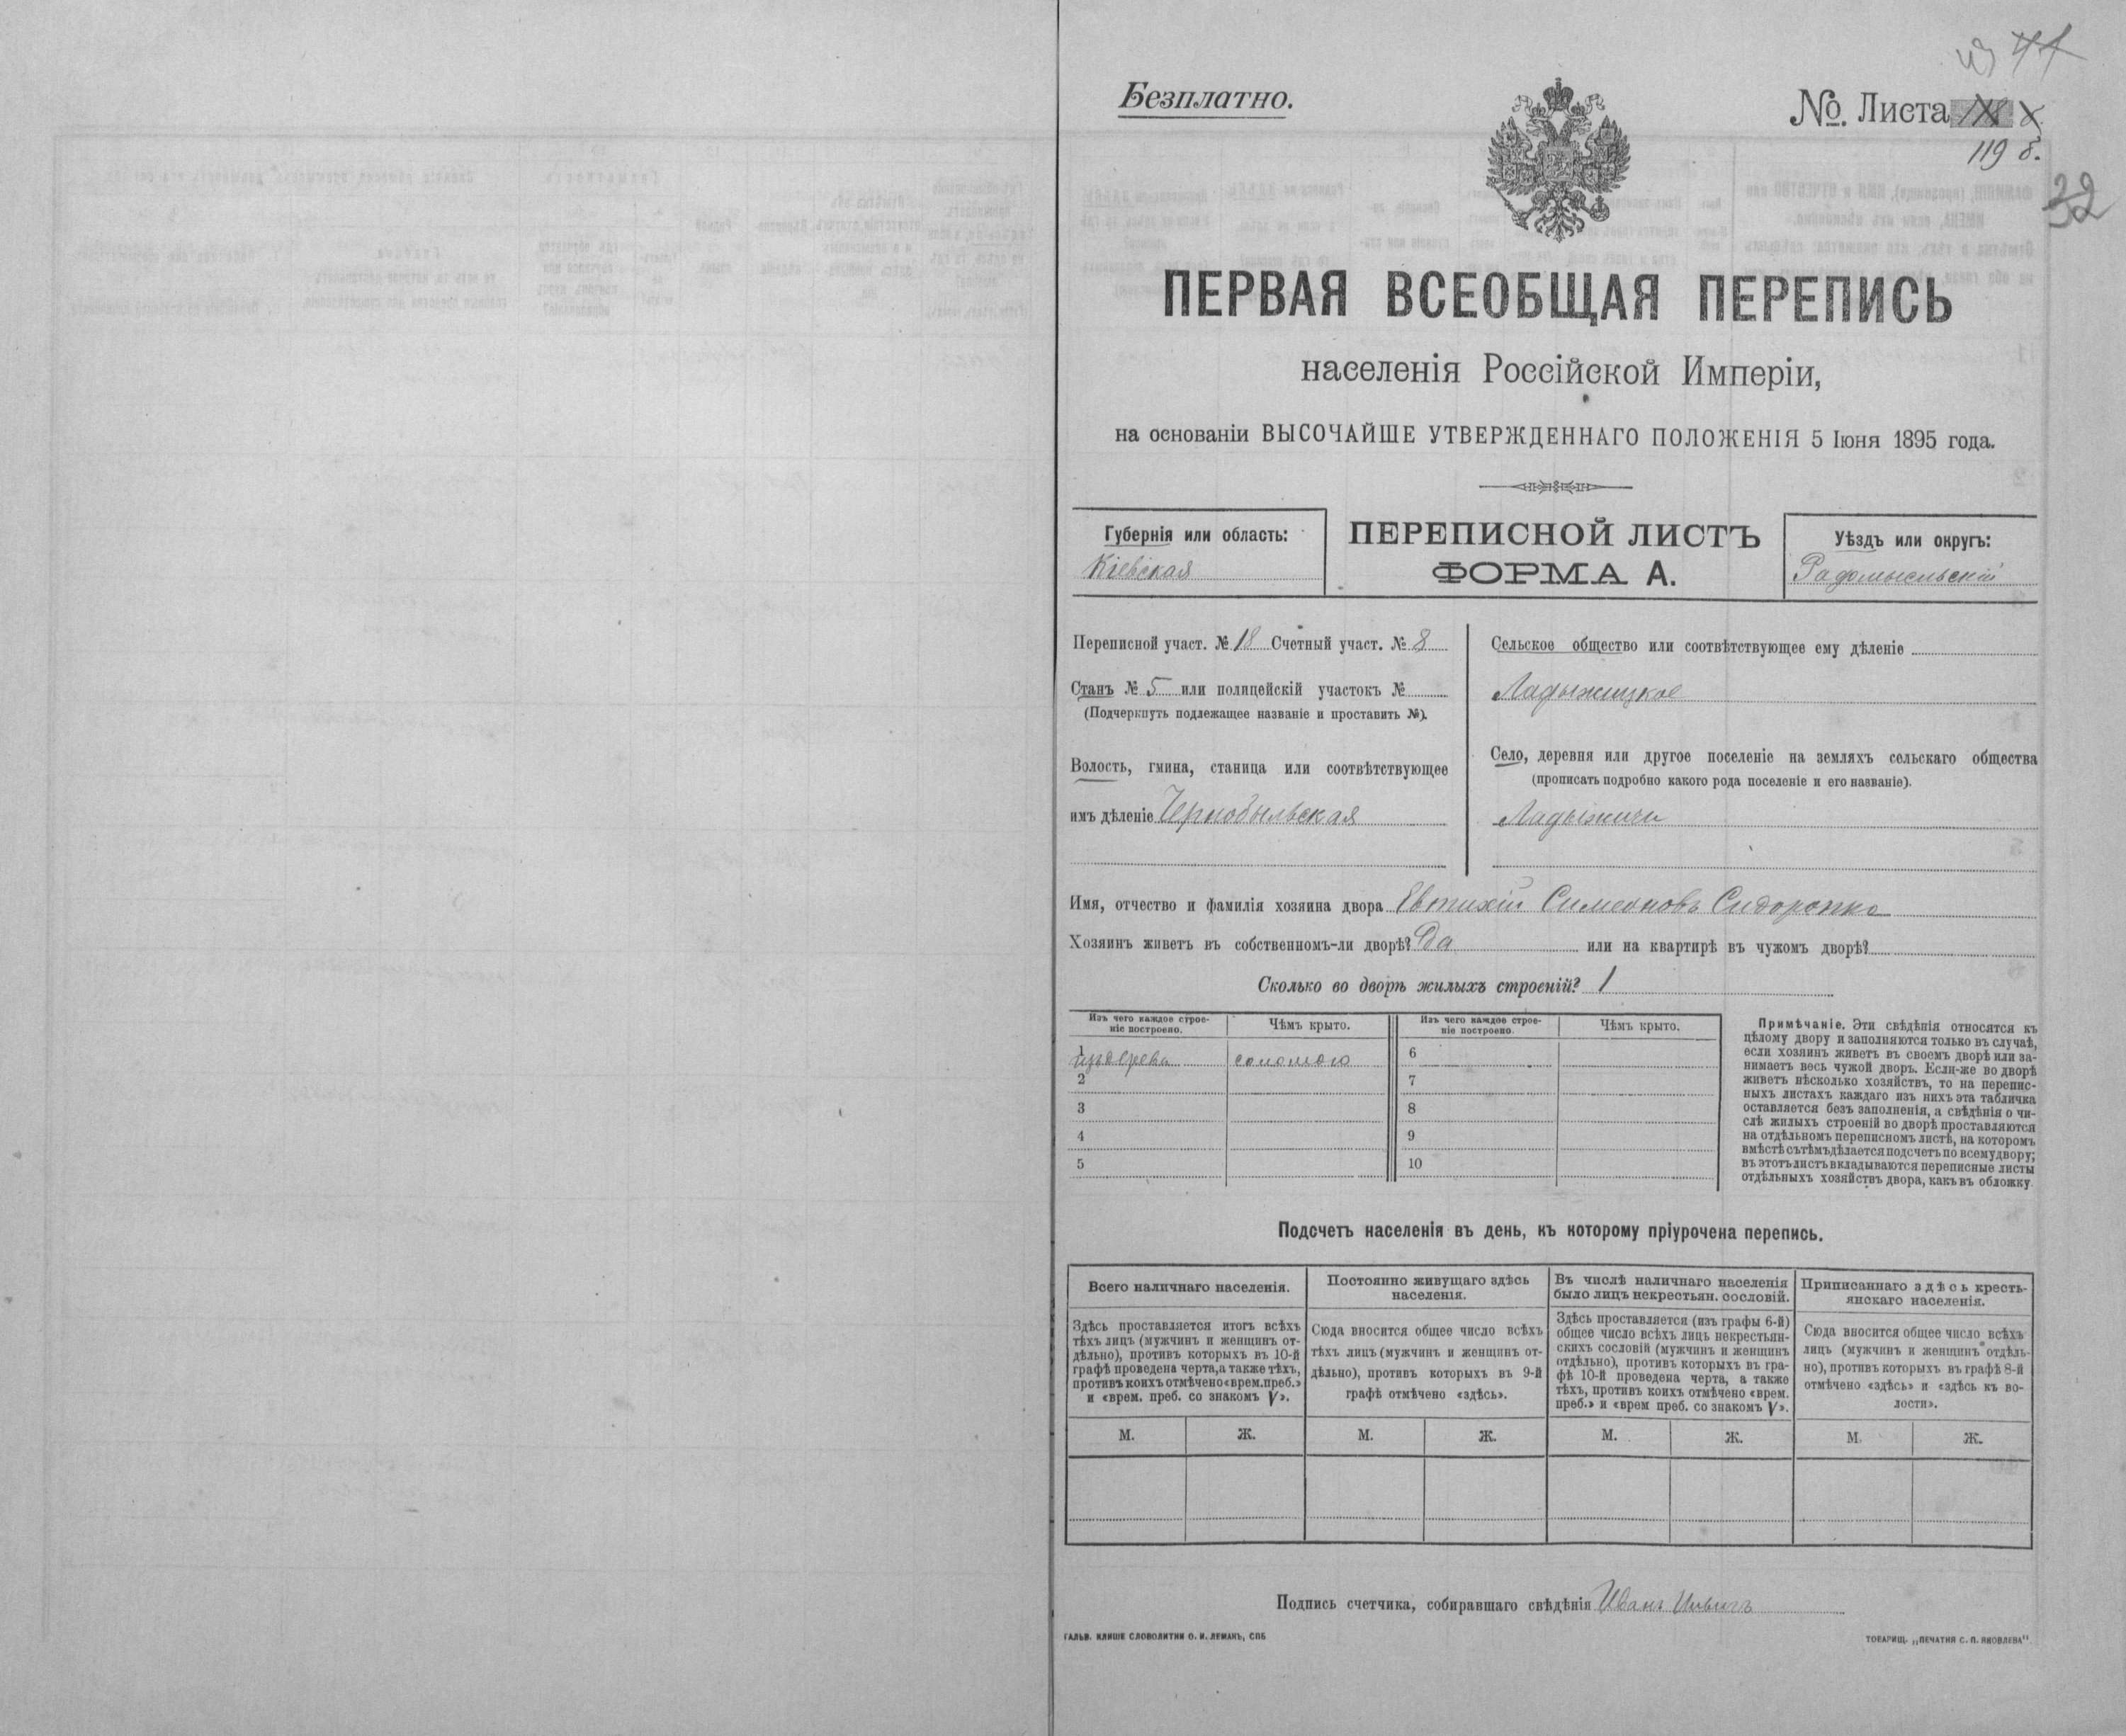 Безплатно.
№ Листа
119 б.
32
ПЕРВАЯ ВСЕОБЩАЯ ПЕРЕПИСЬ
населенія Россійской Имперіи,
на основаніи ВЫСОЧАЙШЕ УТВЕРЖДЕННАГО ПОЛОЖЕНІЯ 5 Іюня 1895 года.
Губернія или область:
Кіевская
ПЕРЕПИСНОЙ ЛИСТЪ
ФОРМА А.
Уѣздъ или округъ:
Радомысльскій
Переписной участ. № 18 Счетный участ. № 8
Станъ № 5 или полицейскій участокъ №
(Подчеркнуть подлежащее названіе и проставить №).
Волость, гмина, станица или соотвѣтствующее
имъ дѣленіе Чернобыльская
Сельское общество или соотвѣтствующее ему дѣленіе
Ладыжицкое
Село, деревня или другое поселеніе на земляхъ сельскаго общества
(прописать подробно какого рода поселеніе и его названіе).
Ладыжичи
Имя, отчество и фамилія хозяина двора Евтихій Симеоновъ Сидоренко
Хозяинъ живетъ въ собственномъ-ли дворѣ? Да или на квартирѣ въ чужомъ дворѣ?
Сколько во дворѣ жилыхъ строеній? 1
Изъ чего каждое строе-
ніе построено.
Чѣмъ крыто.
Изъ чего каждое строе-
ніе построено.
Чѣмъ крыто.
1 изъ дерева соломою 6
2 7
3 8
4 9
5 10
Примѣчаніе. Эти свѣдѣнія относятся къ
цѣлому двору и заполняются только въ случаѣ,
если хозяинъ живетъ въ своемъ дворѣ или за-
нимаетъ весь чужой дворъ. Если-же во дворѣ
живетъ нѣсколько хозяйствъ, то на перепис-
ныхъ листахъ каждаго изъ нихъ эта табличка
оставляется безъ заполненія, а свѣдѣнія о чи-
слѣ жилыхъ строеній во дворѣ проставляются
на отдѣльномъ переписномъ листѣ, на которомъ
вмѣстѣ съ тѣмъ дѣлается подсчетъ по всему двору;
въ этотъ листъ вкладываются переписные листы
отдѣльныхъ хозяйствъ двора, какъ въ обложку.
Подсчетъ населенія въ день, къ которому пріурочена перепись.
Всего наличнаго населенія.
Здѣсь проставляется итогъ всѣхъ
тѣхъ лицъ (мужчинъ и женщинъ от-
дѣльно), противъ которыхъ въ 10-й
графѣ проведена черта, а также тѣхъ,
противъ коихъ отмѣчено «врем. преб.»
и «врем. преб. со знакомъ V».
М. Ж.
Постоянно живущаго здѣсь
населенія.
Сюда вносится общее число всѣхъ
тѣхъ лицъ (мужчинъ и женщинъ от-
дѣльно), противъ которыхъ въ 9-й
графѣ отмѣчено «здѣсь».
М. Ж.
Въ числѣ наличнаго населенія
было лицъ некрестьян. сословій.
Здѣсь проставляется (изъ графы 6-й)
общее число всѣхъ лицъ некрестьян-
скихъ сословій (мужчинъ и женщинъ
отдѣльно), противъ которыхъ въ гра-
фѣ 10-й проведена черта, а также
тѣхъ, противъ коихъ отмѣчено «врем.
преб.» и «врем преб. со знакомъ V».
М. Ж.
Приписаннаго здѣсь кресть-
янскаго населенія.
Сюда вносится общее число всѣхъ
лицъ (мужчинъ и женщинъ отдѣль-
но), противъ которыхъ въ графѣ 8-й
отмѣчено «здѣсь» и «здѣсь къ во-
лости».
М. Ж.
Подпись счетчика, собиравшаго свѣдѣнія Иванъ
ГАЛЬВ. КЛИШЕ СЛОВОЛИТНИ О. И. ЛЕМАНЪ, СПБ
ТОВАРИЩ. „ПЕЧАТНЯ С. П. ЯКОВЛЕВА“.